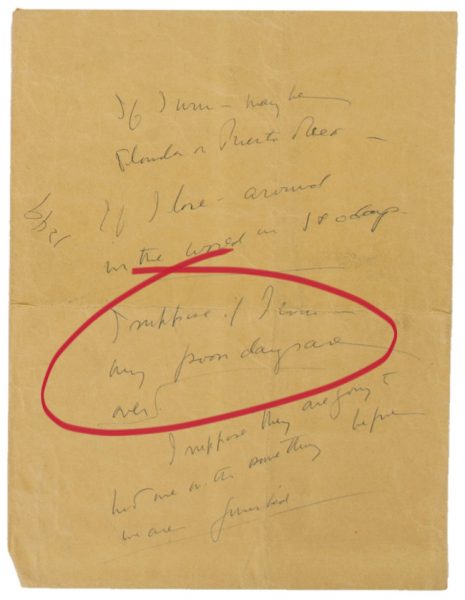 If I win - may be
Florida or Puerto Rico -
If I lose - around
the world in 180 days
I suppose if I win -
my poon days are
over
I suppose they are going to
hit me with something before
we are finished